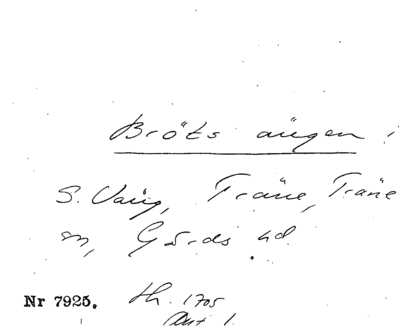 Bröts ängen
S. Väng, Träne, Träne
sn, Gärds hd.
Nr 7925. th. 1705
Akt 1.